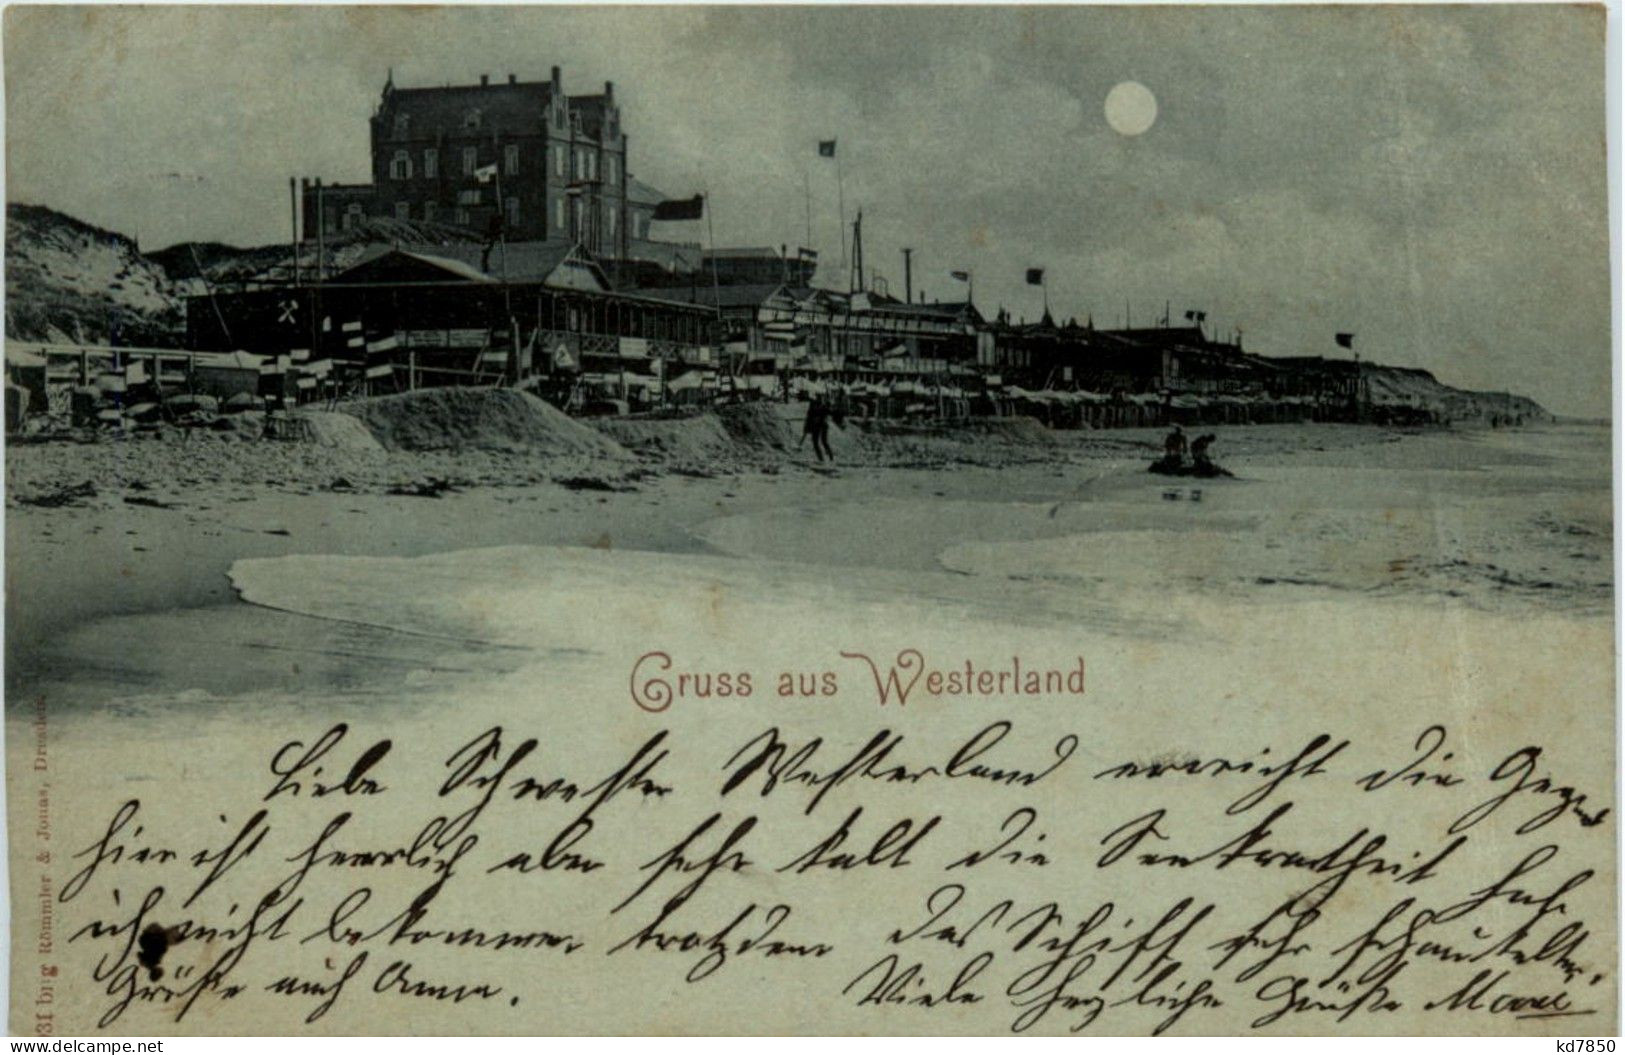 Gruss aus Westerland
Liebe Schwester Westerland erreicht die Gegend
hier ist herrlich aber sehr kalt die Seekrankheit habe
ich nicht bekommen trotzdem das Schiff sehr schaukelte.
Grüße auch Anna. Viele herzliche Grüße
31 bug Römmler & Jonas, Dresden.
kd7850